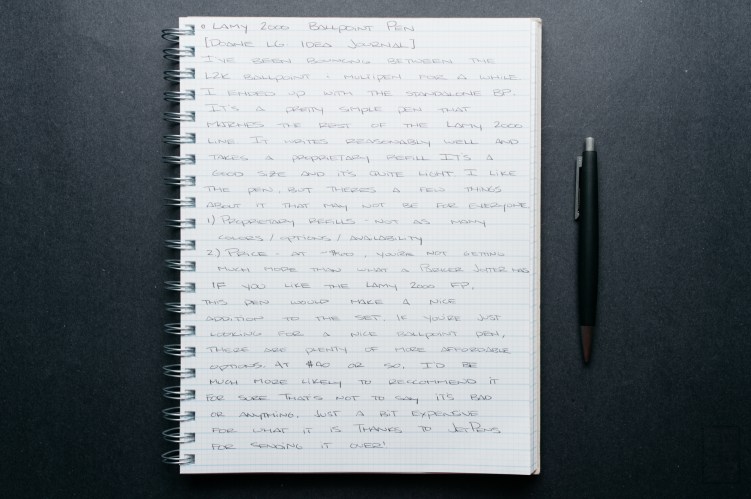 • LAMY 2000 BALLPOINT PEN
[DOANE LG IDEA JOURNAL]
I'VE BEEN BOUNCING BETWEEN THE
L2K BALLPOINT + MULTIPEN FOR A WHILE
I ENDED UP WITH THE STANDALONE BP.
IT'S A PRETTY SIMPLE PEN THAT
MATCHES THE REST OF THE LAMY 2000
LINE. IT WRITES REASONABLY WELL AND
TAKES A PROPRIETARY REFILL IT'S A
GOOD SIZE AND IT'S QUITE LIGHT. I LIKE
THE PEN, BUT THERES A FEW THINGS
ABOUT IT THAT MAY NOT BE FOR EVERYONE.
1) PROPRIETARY REFILLS - NOT AS MANY
COLORS / OPTIONS / AVAILABILITY
2) PRICE - AT YOU'RE NOT GETTING
MUCH MORE THAN WHAT A PARKER JOTTER HAS
IF YOU LIKE THE LAMY 2000 FP,
THIS PEN WOULD MAKE A NICE
ADDITION TO THE SET. IF YOU'RE JUST
LOOKING FOR A NICE BALLPOINT PEN,
THERE ARE PLENTY OF MORE AFFORDABLE
OPTIONS. AT $40 OR SO, I'D BE
MUCH MORE LIKELY TO RECCOMMEND IT
FOR SURE THAT'S NOT TO SAY IT'S BAD
OR ANYTHING, JUST A BIT EXPENSIVE
FOR WHAT IT IS THANKS TO JETPENS
FOR SENDING IT OVER!